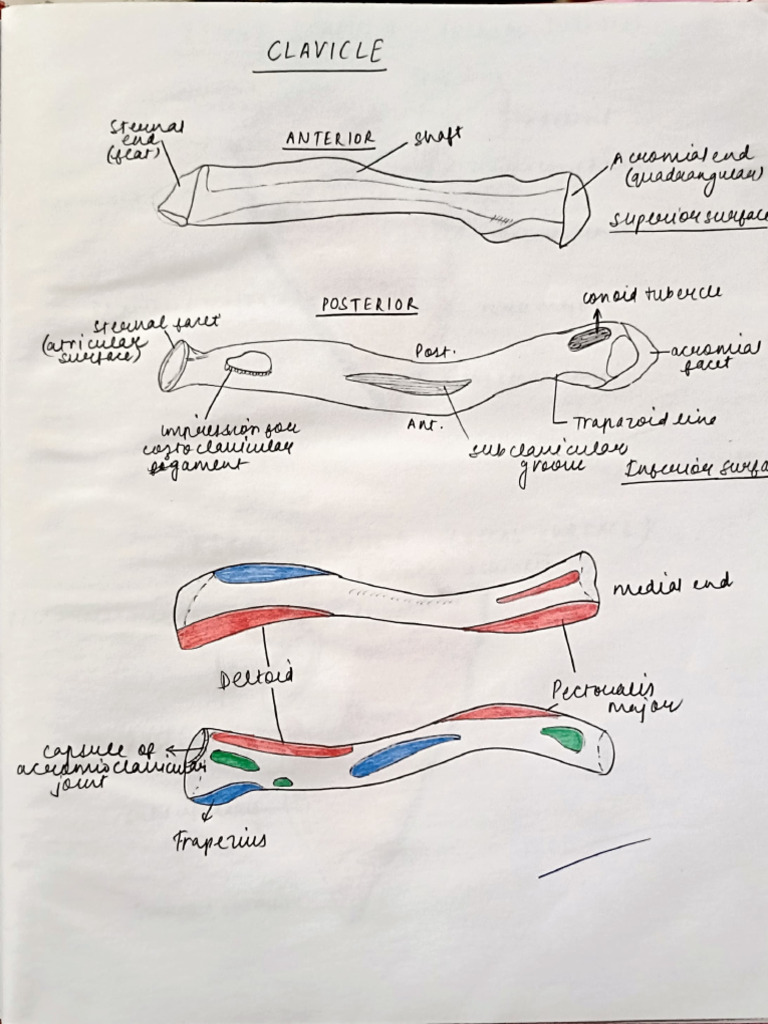 CLAVICLE
Sternal
end
(flat)
ANTERIOR
shaft
Acromial end
(quadrangular)
Superior surface
POSTERIOR
conoid tubercle
Sternal facet
(atricular
surface)
Post.
acromial
facet
Ant.
Trapazoid line
impression for
costoclavicular
ligament
subclavicular
groove
Inferior surfa
medial end
Deltoid
Pectoralis
major
capsule of
acromioclavicular
joint
Trapezius